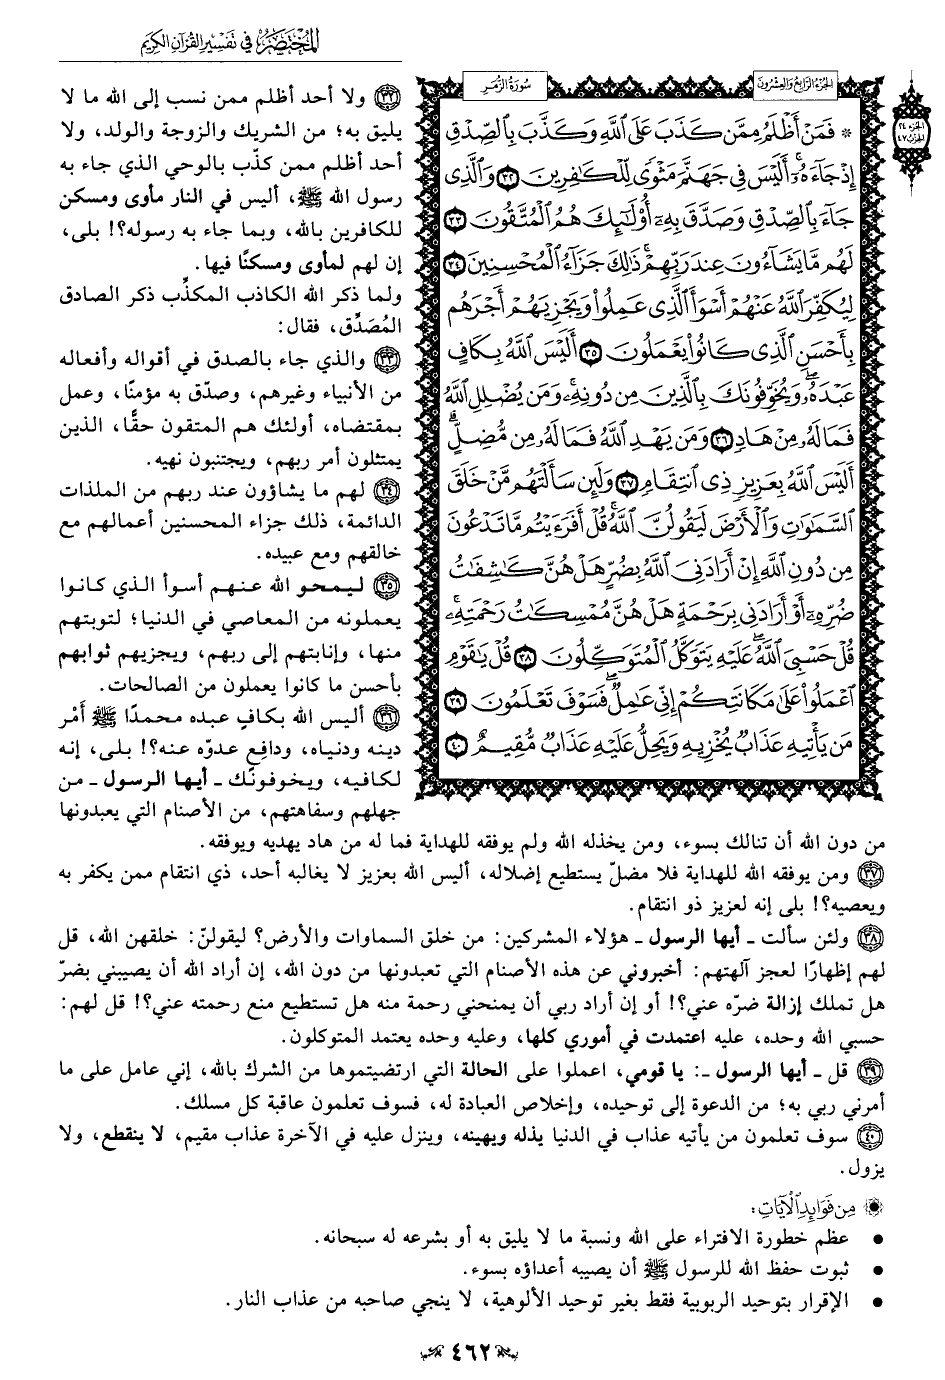 المختصر في تفسير القرآن الكريم
الجزء الرابع والعشرون
سورة الزمر
الجزء ٢٤
الحزب ٤٧
* فَمَنْ أَظْلَمُ مِمَّن كَذَبَ عَلَى ٱللَّهِ وَكَذَّبَ بِٱلصِّدْقِ
إِذْ جَآءَهُۥٓ أَلَيْسَ فِى جَهَنَّمَ مَثْوًى لِّلْكَـٰفِرِينَ ٣٢ وَٱلَّذِى
جَآءَ بِٱلصِّدْقِ وَصَدَّقَ بِهِۦٓ أُوْلَـٰٓئِكَ هُمُ ٱلْمُتَّقُونَ ٣٣
لَهُم مَّا يَشَآءُونَ عِندَ رَبِّهِمْ ذَٰلِكَ جَزَآءُ ٱلْمُحْسِنِينَ ٣٤
لِيُكَفِّرَ ٱللَّهُ عَنْهُمْ أَسْوَأَ ٱلَّذِى عَمِلُواْ وَيَجْزِيَهُمْ أَجْرَهُم
بِأَحْسَنِ ٱلَّذِى كَانُواْ يَعْمَلُونَ ٣٥ أَلَيْسَ ٱللَّهُ بِكَافٍ
عَبْدَهُۥ وَيُخَوِّفُونَكَ بِٱلَّذِينَ مِن دُونِهِۦ وَمَن يُضْلِلِ ٱللَّهُ
فَمَا لَهُۥ مِنْ هَادٍ ٣٦ وَمَن يَهْدِ ٱللَّهُ فَمَا لَهُۥ مِن مُّضِلٍّ
أَلَيْسَ ٱللَّهُ بِعَزِيزٍ ذِى ٱنتِقَامٍ ٣٧ وَلَئِن سَأَلْتَهُم مَّنْ خَلَقَ
ٱلسَّمَـٰوَٰتِ وَٱلْأَرْضَ لَيَقُولُنَّ ٱللَّهُ قُلْ أَفَرَءَيْتُم مَّا تَدْعُونَ
مِن دُونِ ٱللَّهِ إِنْ أَرَادَنِىَ ٱللَّهُ بِضُرٍّ هَلْ هُنَّ كَـٰشِفَـٰتُ
ضُرِّهِۦٓ أَوْ أَرَادَنِى بِرَحْمَةٍ هَلْ هُنَّ مُمْسِكَـٰتُ رَحْمَتِهِۦ
قُلْ حَسْبِىَ ٱللَّهُ عَلَيْهِ يَتَوَكَّلُ ٱلْمُتَوَكِّلُونَ ٣٨ قُلْ يَـٰقَوْمِ
ٱعْمَلُواْ عَلَىٰ مَكَانَتِكُمْ إِنِّى عَـٰمِلٌ فَسَوْفَ تَعْلَمُونَ ٣٩
مَن يَأْتِيهِ عَذَابٌ يُخْزِيهِ وَيَحِلُّ عَلَيْهِ عَذَابٌ مُّقِيمٌ ٤٠
٣٢ ولا أحد أظلم ممن نسب إلى الله ما لا
يليق به؛ من الشريك والزوجة والولد، ولا
أحد أظلم ممن كذّب بالوحي الذي جاء به
رسول الله ﷺ، أليس في النار مأوى ومسكن
للكافرين بالله، وبما جاء به رسوله؟! بلى،
إن لهم لمأوى ومسكنًا فيها.
ولما ذكر الله الكاذب المكذِّب ذكر الصادق
المُصَدِّق، فقال:
٣٣ والذي جاء بالصدق في أقواله وأفعاله
من الأنبياء وغيرهم، وصدّق به مؤمنًا، وعمل
بمقتضاه، أولئك هم المتقون حقًّا، الذين
يمتثلون أمر ربهم، ويجتنبون نهيه.
٣٤ لهم ما يشاؤون عند ربهم من الملذات
الدائمة، ذلك جزاء المحسنين أعمالهم مع
خالقهم ومع عبيده.
٣٥ ليمحو الله عنهم أسوأ الذي كانوا
يعملونه من المعاصي في الدنيا؛ لتوبتهم
منها، وإنابتهم إلى ربهم، ويجزيهم ثوابهم
بأحسن ما كانوا يعملون من الصالحات.
٣٦ أليس الله بكافٍ عبده محمدًا ﷺ أمْر
دينه ودنياه، ودافعٍ عدوّه عنه؟! بلى، إنه
لكافيه، ويخوفونك ـ أيها الرسول ـ من
جهلهم وسفاهتهم، من الأصنام التي يعبدونها
من دون الله أن تنالك بسوء، ومن يخذله الله ولم يوفقه للهداية فما له من هاد يهديه ويوفقه.
٣٧ ومن يوفقه الله للهداية فلا مضلّ يستطيع إضلاله، أليس الله بعزيز لا يغالبه أحد، ذي انتقام ممن يكفر به
ويعصيه؟! بلى إنه لعزيز ذو انتقام.
٣٨ ولئن سألت ـ أيها الرسول ـ هؤلاء المشركين: من خلق السماوات والأرض؟ ليقولنّ: خلقهن الله، قل
لهم إظهارًا لعجز آلهتهم: أخبروني عن هذه الأصنام التي تعبدونها من دون الله، إن أراد الله أن يصيبني بضرّ
هل تملك إزالة ضرّه عني؟! أو إن أراد ربي أن يمنحني رحمة منه هل تستطيع منع رحمته عني؟! قل لهم:
حسبي الله وحده، عليه اعتمدت في أموري كلها، وعليه وحده يعتمد المتوكلون.
٣٩ قل ـ أيها الرسول ـ: يا قومي، اعملوا على الحالة التي ارتضيتموها من الشرك بالله، إني عامل على ما
أمرني ربي به؛ من الدعوة إلى توحيده، وإخلاص العبادة له، فسوف تعلمون عاقبة كل مسلك.
٤٠ سوف تعلمون من يأتيه عذاب في الدنيا يذله ويهينه، وينزل عليه في الآخرة عذاب مقيم، لا ينقطع، ولا
يزول.
من فوائد الآيات:
• عظم خطورة الافتراء على الله ونسبة ما لا يليق به أو بشرعه له سبحانه.
• ثبوت حفظ الله للرسول ﷺ أن يصيبه أعداؤه بسوء.
• الإقرار بتوحيد الربوبية فقط بغير توحيد الألوهية، لا ينجي صاحبه من عذاب النار.
٤٦٢